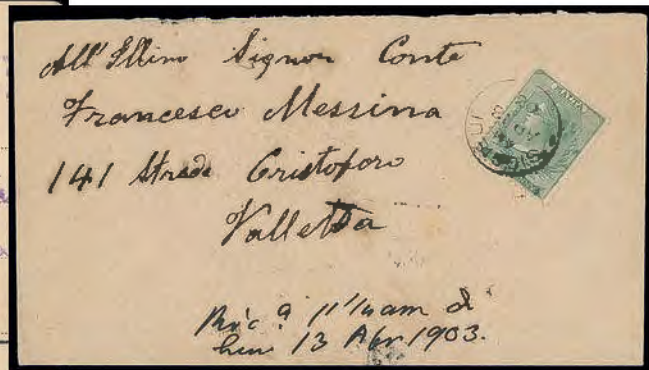 All' Illmo Signor Conte
Francesco Messina
141 Strada Cristoforo
Valletta
MALTA
11 am
13 Apr 1903.